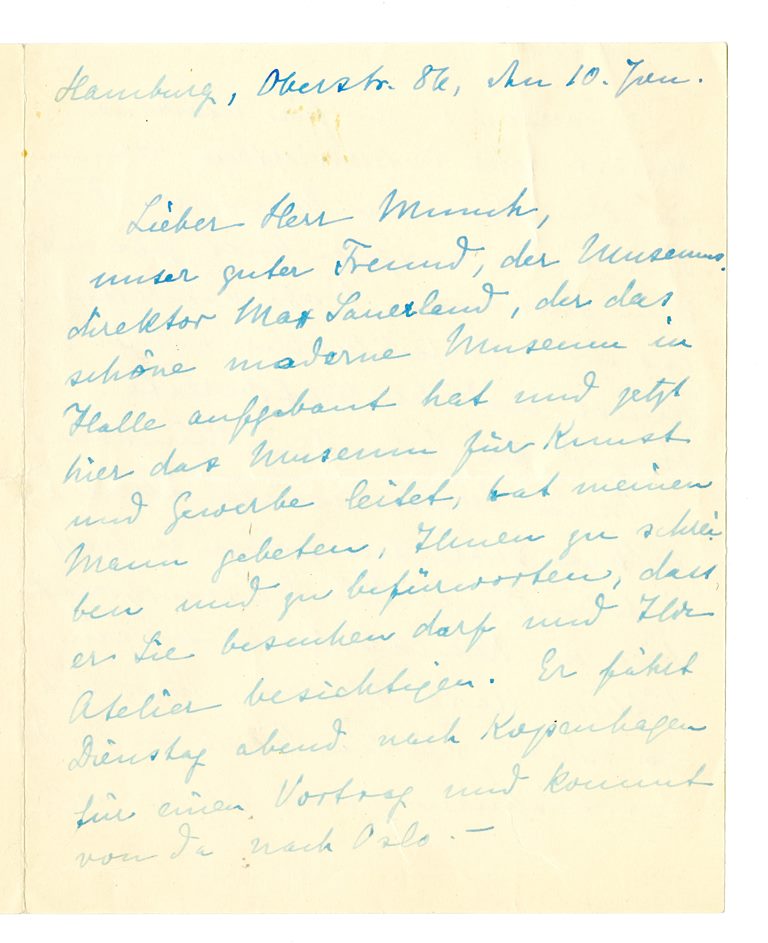 Hamburg, Oberstr. 86, den 10. Jan.
Lieber Herr Munch,
unser guter Freund, der Museums-
direktor Max Sauerland, der das
schöne moderne Museum in
Halle aufgebaut hat und jetzt
hier das Museum für Kunst
und Gewerbe leitet, hat meinen
Mann gebeten, Ihnen zu schrei-
ben und zu befürworten, dass
er Sie besuchen darf und Ihr
Atelier besichtigen. Er fährt
Dienstag abend nach Kopenhagen
für einen Vortrag und kommt
von da nach Oslo. —